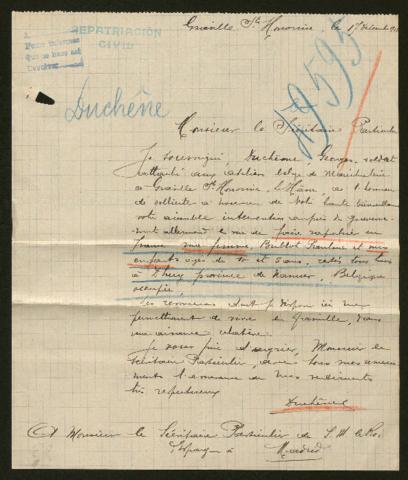 Graville Ste Honorine, le 1er Décembre
REPATRIACIÓN
CIVIL
Duchêne
49595
Monsieur le Secrétaire Particulier
Je soussigné, Duchesne, Georges, soldat
aux ateliers belges de
à Graville Ste Honorine, le Hâvre, a l'honneur
de solliciter de votre haute bienveillance
votre aimable intervention auprès du gouverne-
ment allemand en vue de faire rapatrier en
France ma femme, Pauline et mes
enfants âgés de 10 et 5 ans, restés tous trois
à province de Namur, Belgique
occupée
Les ressources dont je dispose ici me
permettraient de vivre à Graville, dans
une aisance relative.
Je vous prie d'agréer, Monsieur le
Secrétaire Particulier, avec tous mes remercie-
ments l'assurance de mes sentiments
très respectueux
Duchêne
A Monsieur le Secrétaire Particulier de S. M. le Roi
d'Espagne à Madrid